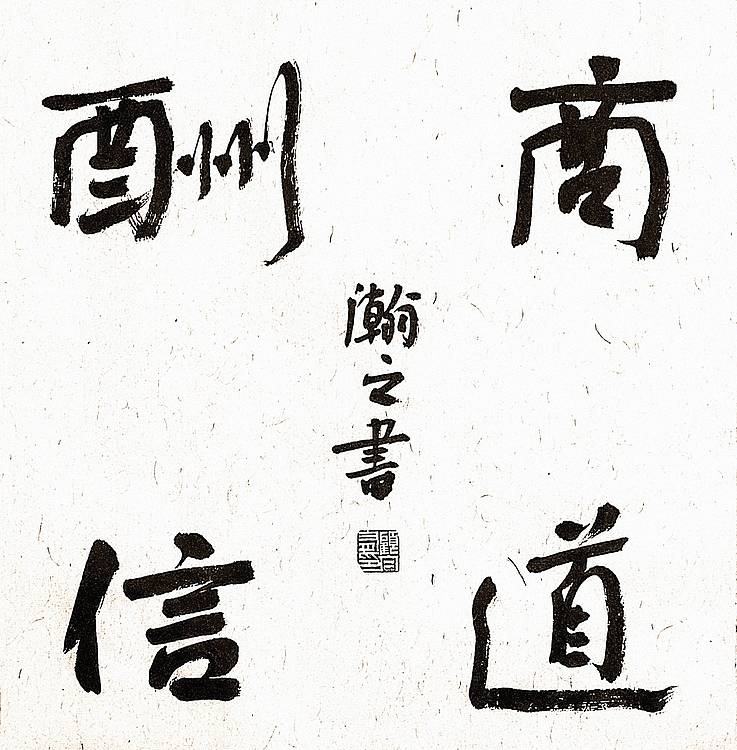 商道
酬信
瀚之書